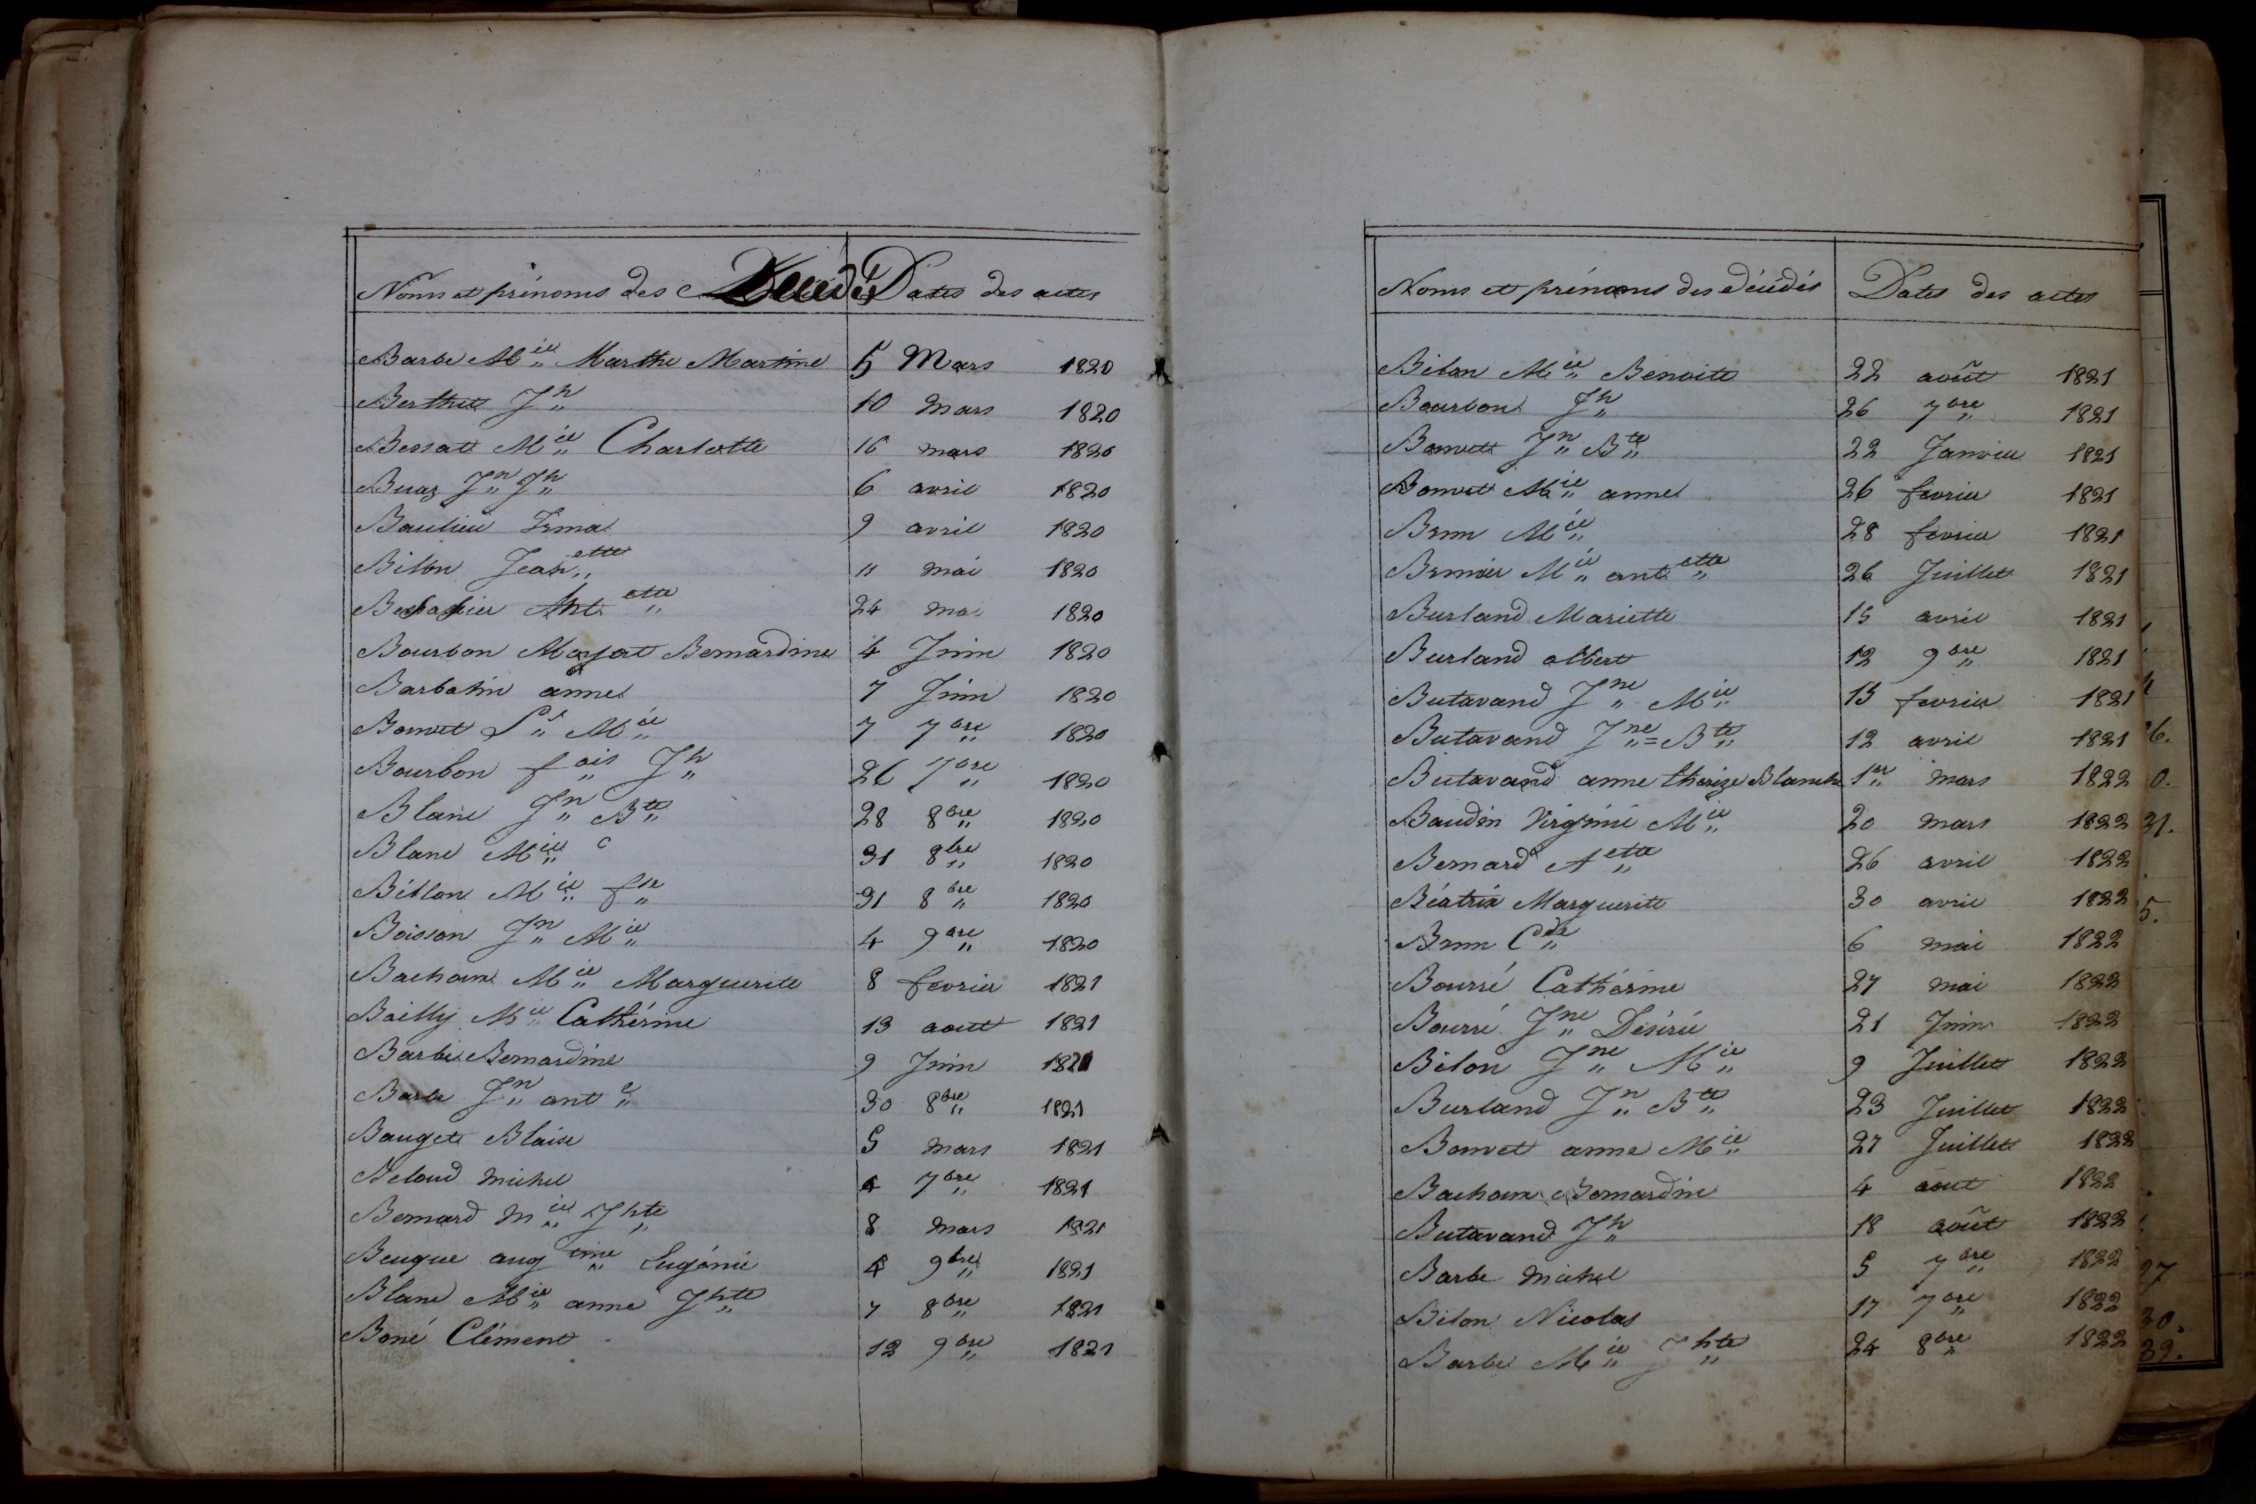 Noms et prénoms des Décédés Dates des actes
Barbe Mie Marthe Martine 5 Mars 1820
Berthet Jh 10 mars 1820
Bessat Mie Charlotte 16 mars 1820
Buaz Jn Jh 6 avril 1820
Baulieu Irma 9 avril 1820
Billon Jeanette 11 mai 1820
Antette 24 mai 1820
Bourbon Marjot Bernardine 4 Juin 1820
Barbatin anne 7 Juin 1820
Bonvet Ls Mie 7 7bre 1820
Bourbon fois Jh 26 7bre 1820
Blanc Jn Bte 28 8bre 1820
Blanc Mie C 31 8bre 1820
Billon Mie fse 31 8bre 1820
Boisson Jn Mie 4 9bre 1820
Bachoux Mie Marguerite 8 fevrier 1821
Bailly Mie Cathérine 13 aout 1821
Barbe Bernardine 9 Juin 1821
Barbe Jn ant e 30 8bre 1821
Bauget Blaise 5 mars 1821
Beloud michel 4 7bre 1821
Bernard mie Jhte 8 mars 1821
Beuque augtine Eugénie 4 9bre 1821
Blanc Mie anne Jhte 7 8bre 1821
Boné Clément 12 9bre 1821
Noms et prénoms des décédés Dates des actes
Bilon Mie Benoite 22 août 1821
Bourbon Jh 26 7bre 1821
Bonvet Jn Bte 22 Janvier 1821
Bonvet Mie anne 26 fevrier 1821
Brun Mie 28 fevrier 1821
Brunier Mie antette 26 Juillet 1821
Burland Mariette 15 avril 1821
Burland albert 12 9bre 1821
Butavand Jne Mie 15 fevrier 1821
Butavand Jne=Bte 12 avril 1821
Butavand anne thérèze Blanche 1er mars 1822
Baudin Virginie Mie 20 mars 1822
Bernard Aette 26 avril 1822
Béatrix Marguerite 30 avril 1822
Brun Cde 6 mai 1822
Bourré Cathérine 27 mai 1822
Bourré Jne Désirée 21 Juin 1822
Bilon Jne Mie 9 Juillet 1822
Burland Jn Bte 23 Juillet 1822
Bonvet anne Mie 27 Juillet 1822
Bachoux Bernardine 4 aout 1822
Butavand Jh 18 août 1822
Barbe michel 5 7bre 1822
Bilon Nicolas 17 7bre 1822
Barbe Mie Jhte 24 8bre 1822